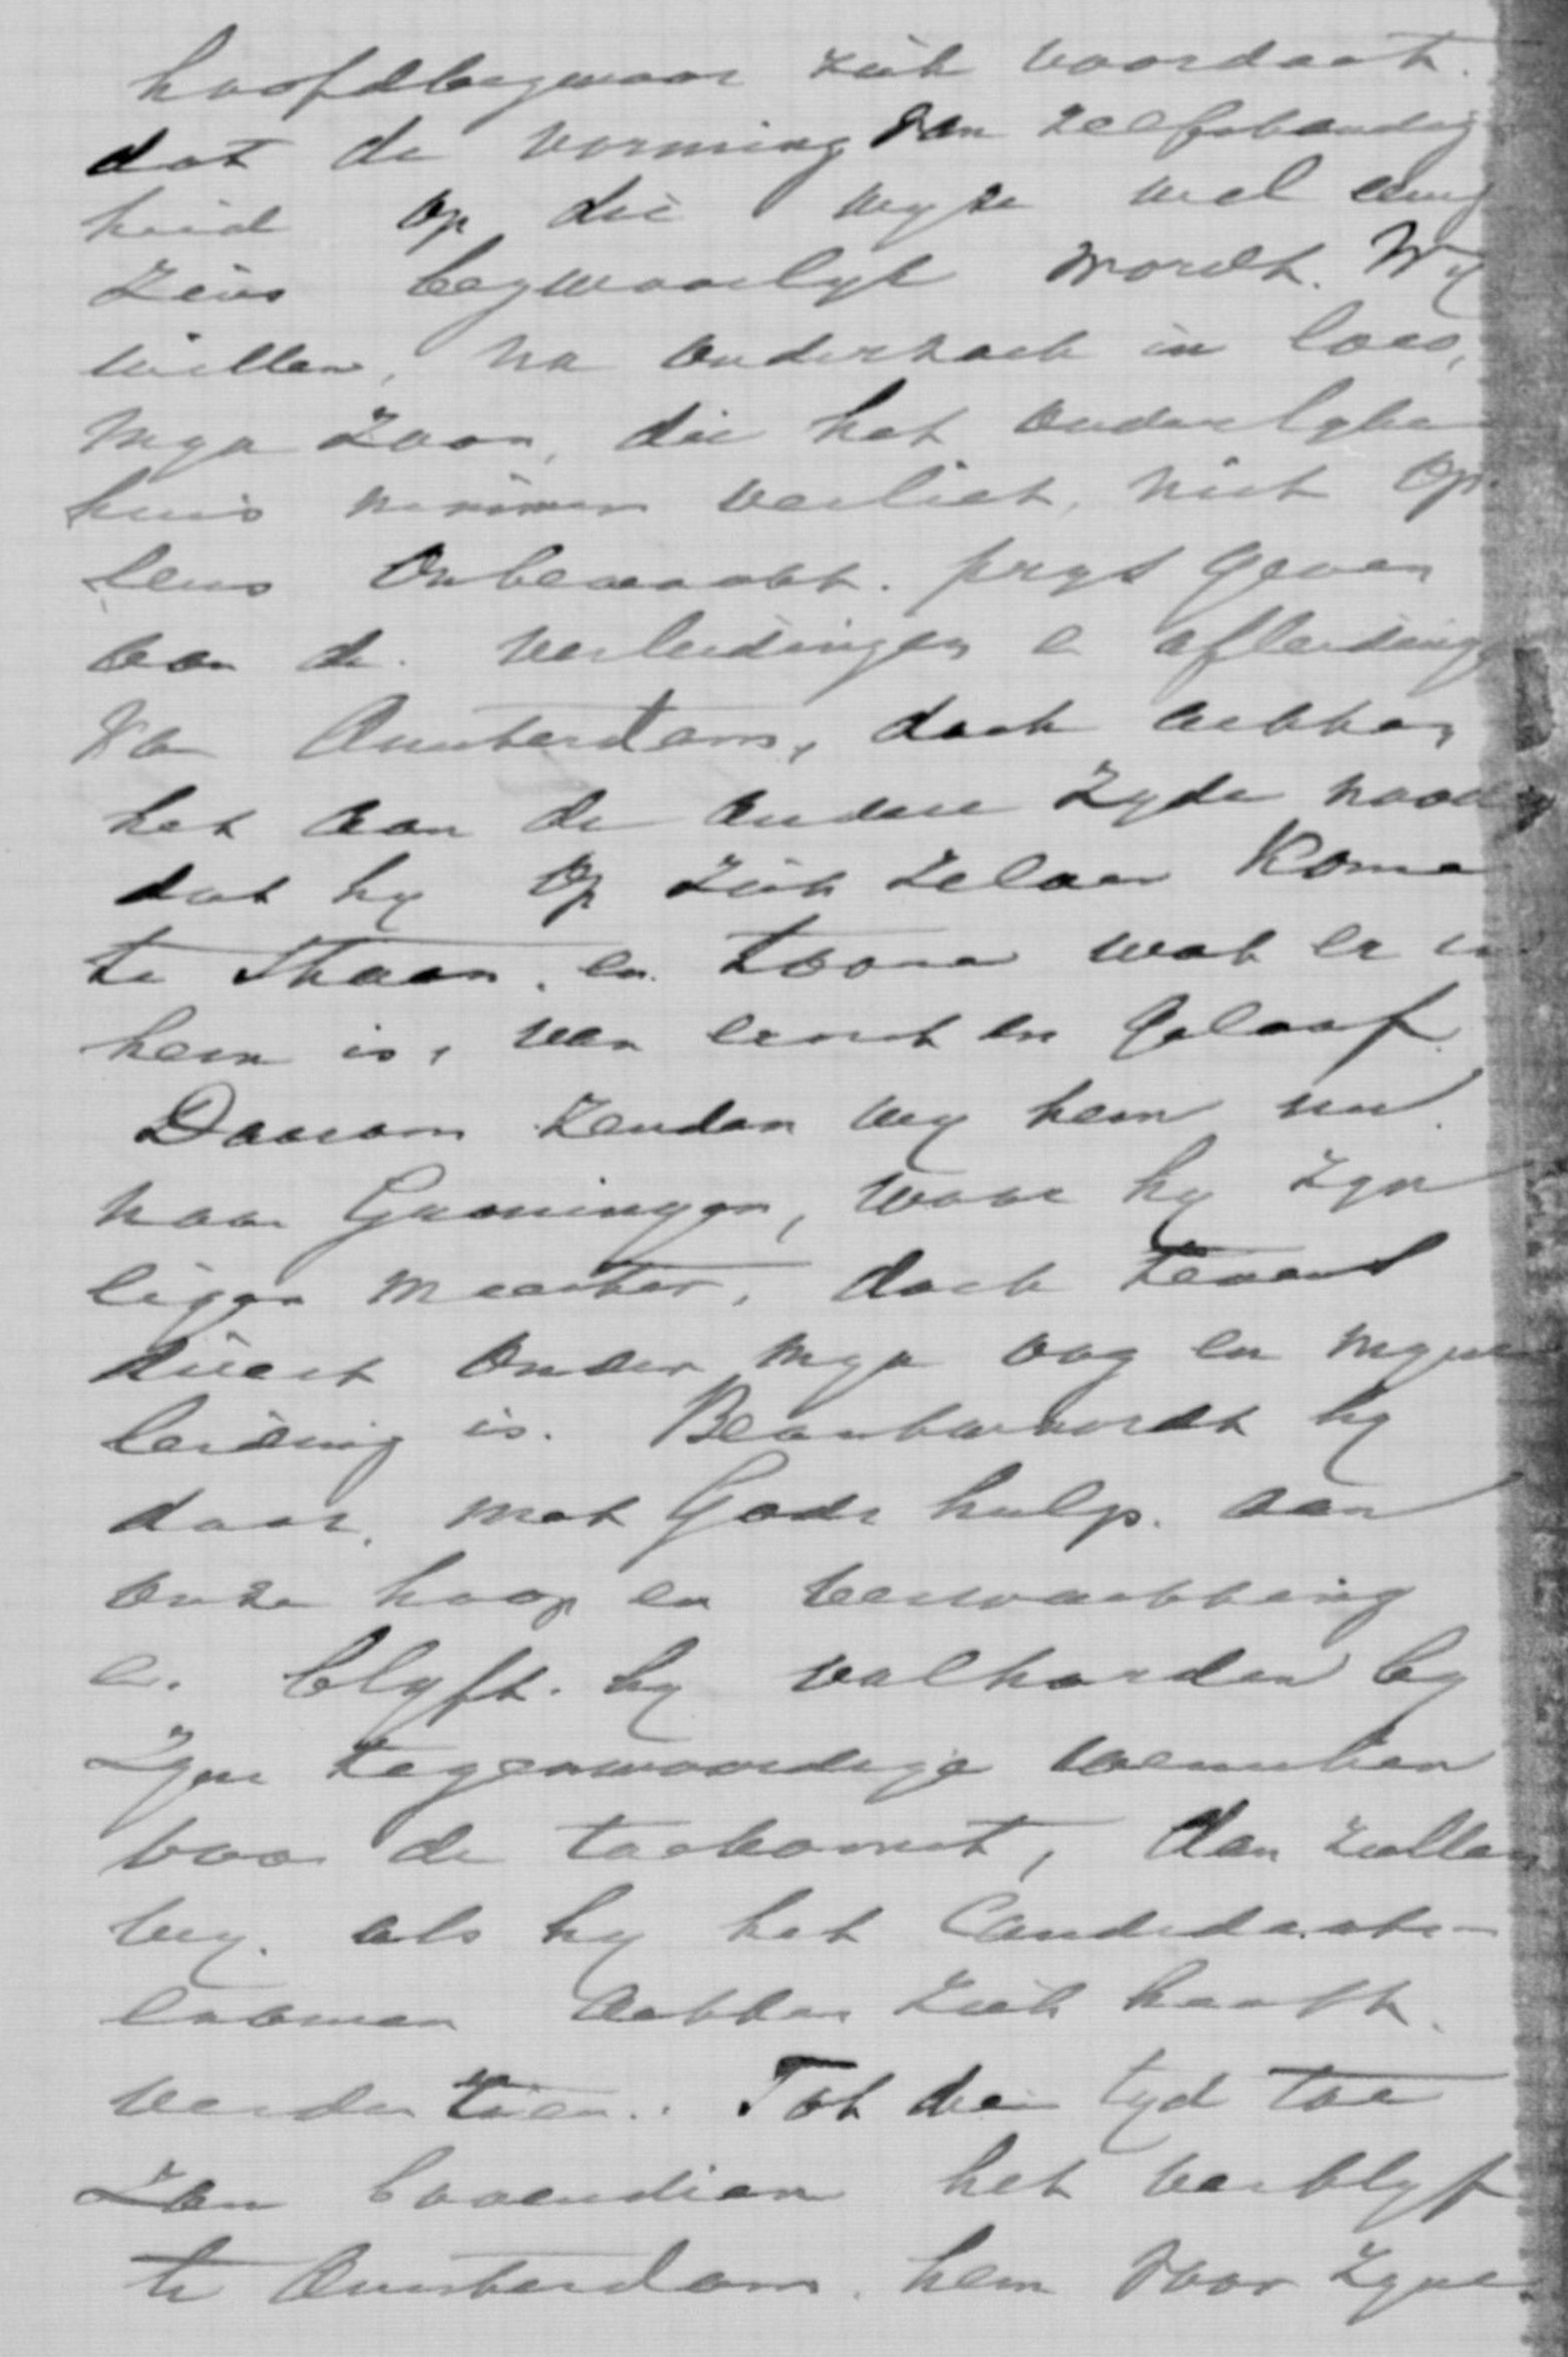 hoofdbezwaar zich voordoet.
dat de vorming van zelfstandig
heid op die wyze wel eenig
zins bezwaarlyk wordt. Wy
willen, na onderzoek in loco,
myn Zoon, die het ouderlyke
huis nimmer verliet, niet op
eens onbewaakt. prys geven
aan de verleidingen en afleidinge
van Amsterdam, doch achten
het aan de andere zyde noodig
dat hy op zich zelven kome
te staan. en toone wat er in
hem is, van ernst en geloof.
Daarom zenden wy hem nu.
naar Groningen, waar hy zyn
eigen meester, doch tevens
direct onder myn oog en myne
leiding is. Beantwoordt hy
daar, met Gods hulp. aan
onze hoop en verwachting
en. blyft. hy volharden by
Zyne tegenwoordige wenschen
voor de toekomst, dan zullen
wy. als hy het Candidaats-
examen achter zich heeft.
verder zien. Tot dien tyd toe
Zou bovendien het verblyf
te Amsterdam. hem voor zyne